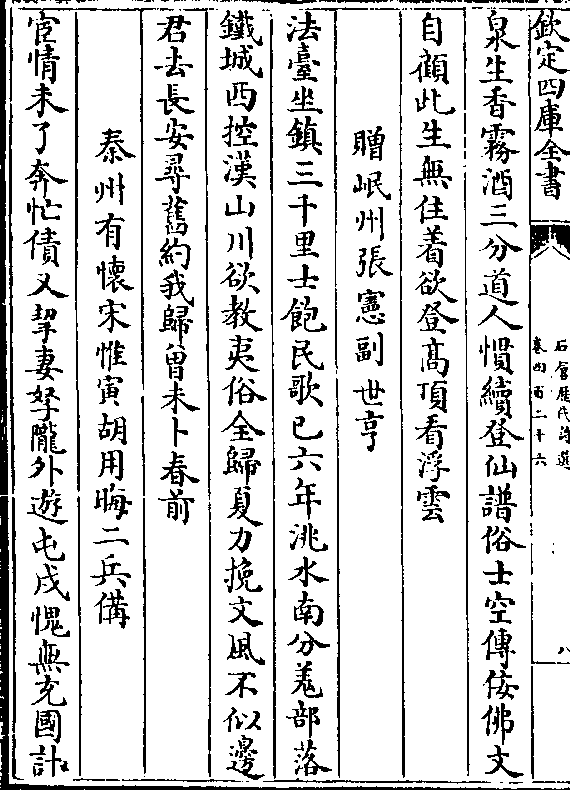 欽定四庫全書
石倉歷代詩選
卷四百二十六
八
泉生香霧酒三分道人慣續登仙譜俗士空傳佞佛文
自顧此生無住着欲登髙頂看浮雲
贈岷州張憲副世亨
法臺坐鎮三千里士飽民歌已六年洮水南分羌部落
鐵城西控漢山川欲教夷俗全歸夏力挽文風不似邊
君去長安尋舊約我歸曽未卜春前
秦州有懐宋惟寅胡用晦二兵備
宦情未了奔忙債又挈妻孥隴外遊屯戍愧無充國計